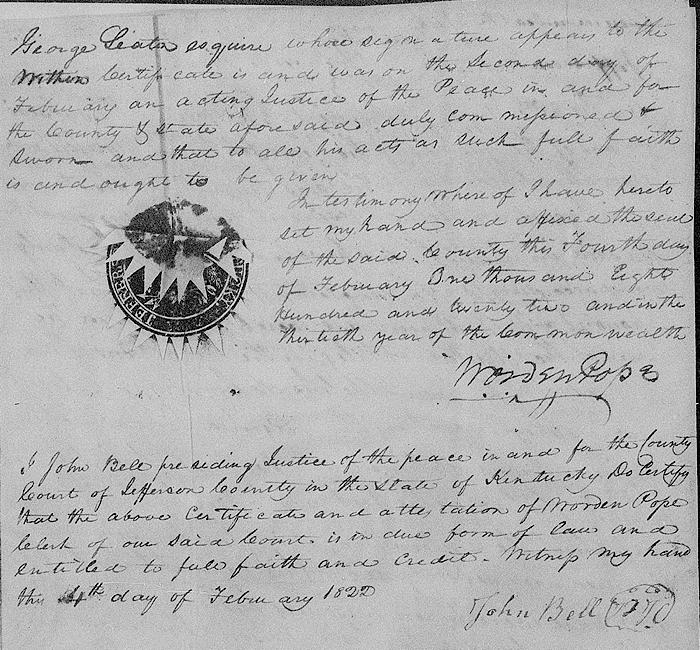 George Seaton esquire whose signature appears to the
Within Certificate is and was on the Second day of
February an acting Justice of the Peace in and for
the County & State aforesaid duly commissioned &
Sworn and that to all his acts as such full faith
is and ought to be given
In testimony whereof I have hereto
set my hand and affixed the seal
of the said County this Fourth day
of February One thousand Eight
Hundred and twenty two and in the
thirtieth year of the Commonwealth
Worden Pope
I John Bell presiding Justice of the peace in and for the County
Court of Jefferson County in the State of Kentucky Do Certify
that the above Certificate and attestation of Worden Pope
Clerk of our said Court is in due form of law and
entitled to full faith and Credit. Witness my hand
this 4th day of February 1822
John Bell